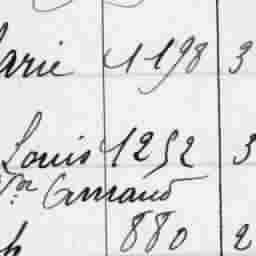 arie 1198 3
Louis 1252 3
Vor Arnaud
h 880 2